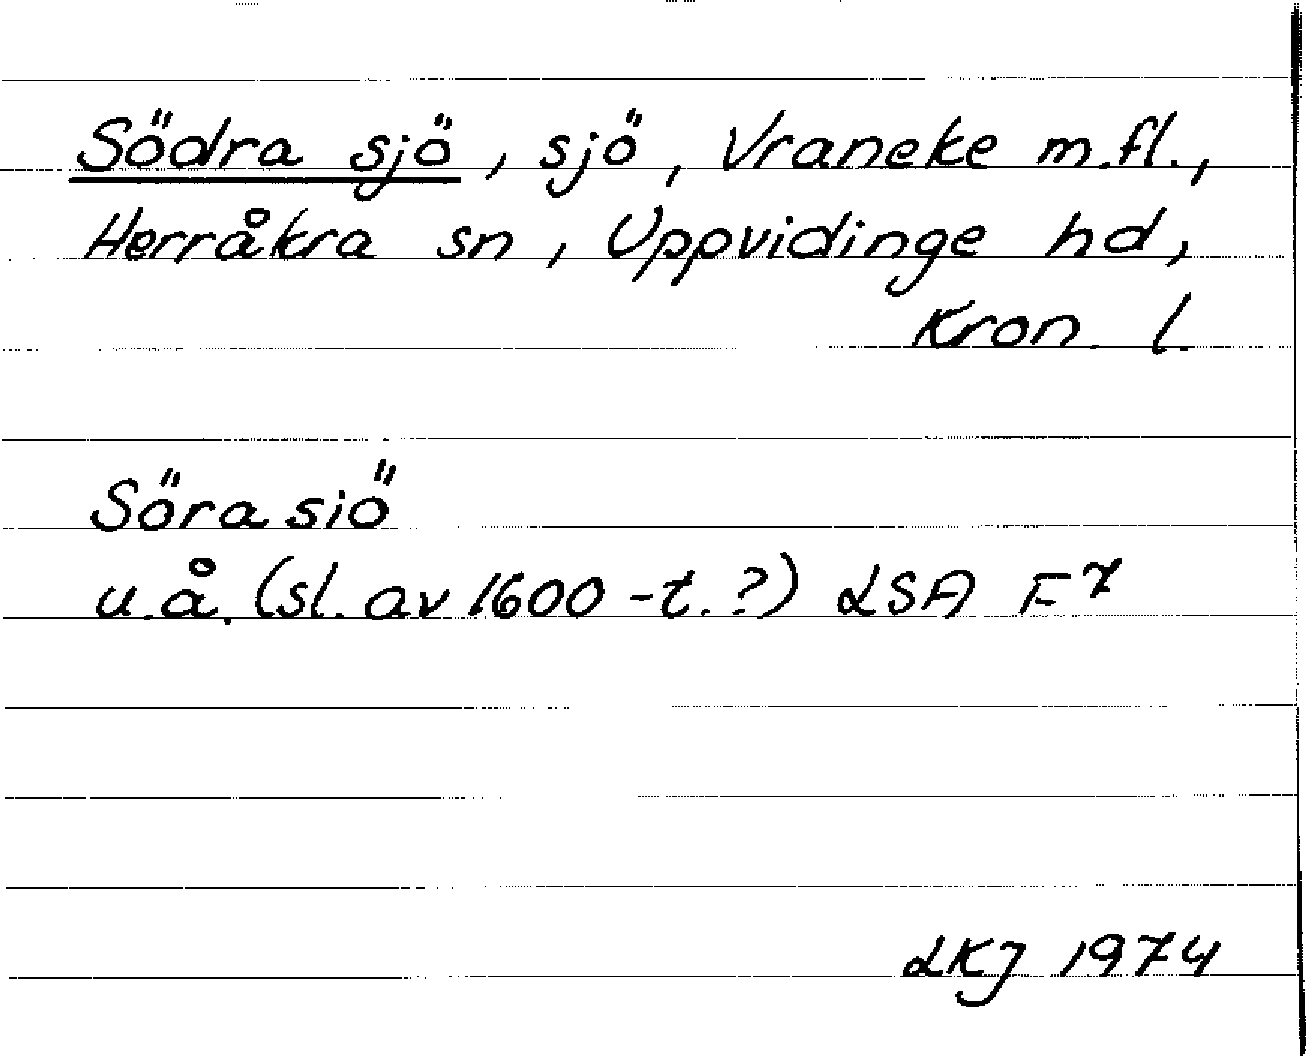 Södra sjö, sjö, Vraneke m.fl.,
Herråkra sn, Uppvidinge hd,
Kron. l.
Söra siö
u.å. (sl. av 1600-t.?) LSA F⁷
LKJ 1974